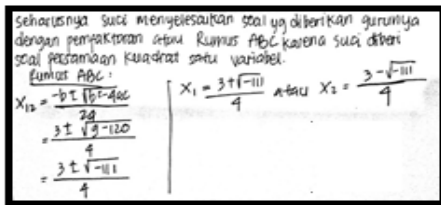 seharusnya suci menyelesaikan soal yg diberikan gurunya
dengan pemfaktoran atau Rumus ABC karena suci diberi
soal persamaan kuadrat satu variabel.
Rumus ABC :
X₁₂ = (-b ± √(b²-4ac))/2a
= (3 ± √(9-120))/4
= (3 ± √-111)/4
X₁ = (3+√-111)/4 atau X₂ = (3-√-111)/4